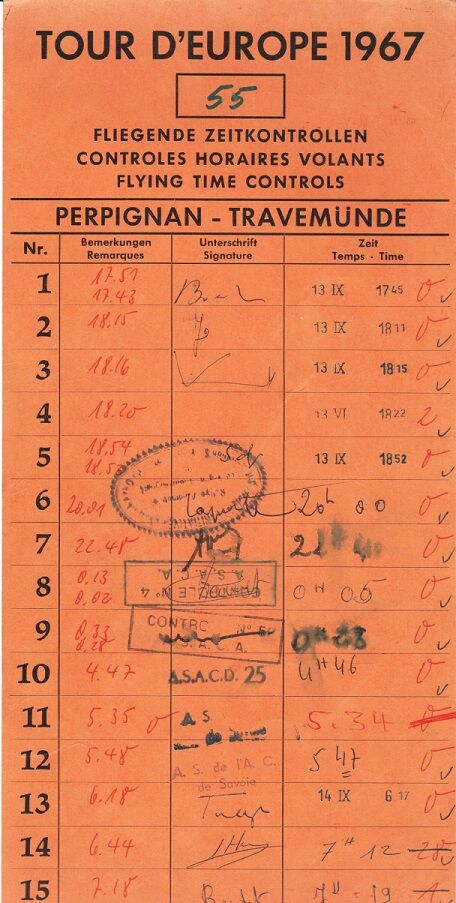 TOUR D'EUROPE 1967
55
FLIEGENDE ZEITKONTROLLEN
CONTROLES HORAIRES VOLANTS
FLYING TIME CONTROLS
PERPIGNAN - TRAVEMÜNDE
Nr. Bemerkungen Unterschrift Zeit
Remarques Signature Temps · Time
17.51
1 17.43 13 IX 17 45 0
2 18.15 13 IX 18 11 0
3 18.16 13 IX 18 15 0
4 18.20 13 VI 18 22 2
18.54
5 13 IX 18 52 0
6 20.01 20h 00 0
7 22.48 22H 40 0
0.13
8 0.02 CONTROLE Nº 4 0H 05 0
A. S. A. C. A.
0.33 CONTRO Nº
9 0.28 S. A. C. A. 0H 28 0
10 4.47 A.S.A.C.D. 25 4H 46 0
11 5.35 0 A. S. 5.34 0
12 5.48 5 47 0
A. S. de l'A. C.
de Savoie
13 6.18 14 IX 6 17 0
14 6.44 7H 12 28
15 7.18 7H 19 1